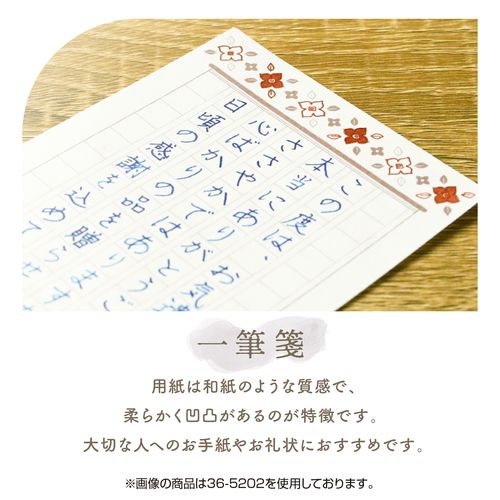 この度は、お気遣
本当にありがとうご
ささやかではありますが
心ばかりの品を贈らせ
日頃の感謝を込めて
一筆箋
用紙は和紙のような質感で、
柔らかく凹凸があるのが特徴です。
大切な人へのお手紙やお礼状におすすめです。
※画像の商品は36-5202を使用しております。